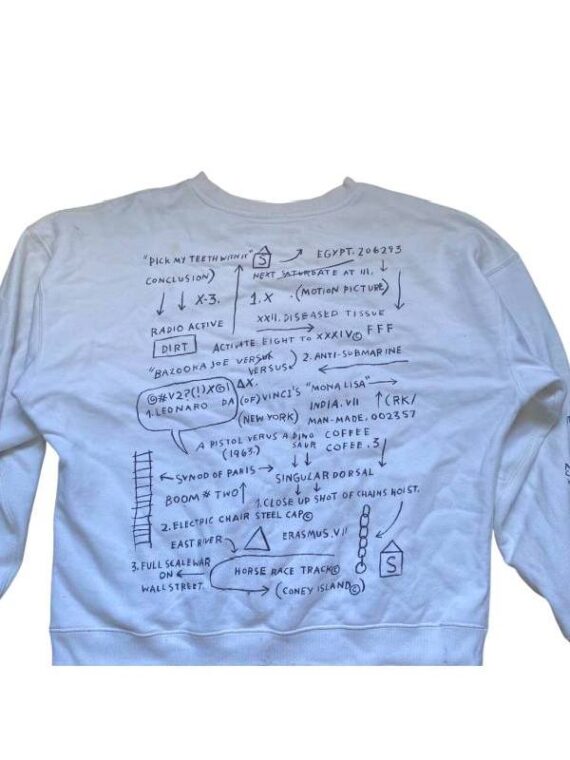 "PICK MY TEETH WITH IT" S → EGYPT. 206293
CONCLUSION) NEXT SATURDATE AT III. ↓
↓ ↓ X-3. 1.X . (MOTION PICTURE)
RADIO ACTIVE XXII. DISEASED TISSUE
DIRT ACTIVATE EIGHT TO XXXIV© FFF
"BAZOOKA JOE VERSUS 2. ANTI-SUBMARINE
VERSUS)
@#V2?(!)X@! ΔX.
1. LEONARO DA (OF) VINCI'S "MONA LISA" →
(NEW YORK) INDIA. VII ↑ (RK/
MAN-MADE. 002357
A PISTOL VERUS A DINO COFFEE
(1963.) SAUR COFEE .3
← SYNOD OF PARIS → SINGULAR DORSAL
BOOM # TWO ↑ 1. CLOSE UP SHOT OF CHAINS HOIST.
2. ELECTRIC CHAIR STEEL CAP©
EAST RIVER ERASMUS. VII
3. FULL SCALE WAR HORSE RACE TRACK© S
ON ←
WALL STREET. → (CONEY ISLAND©)